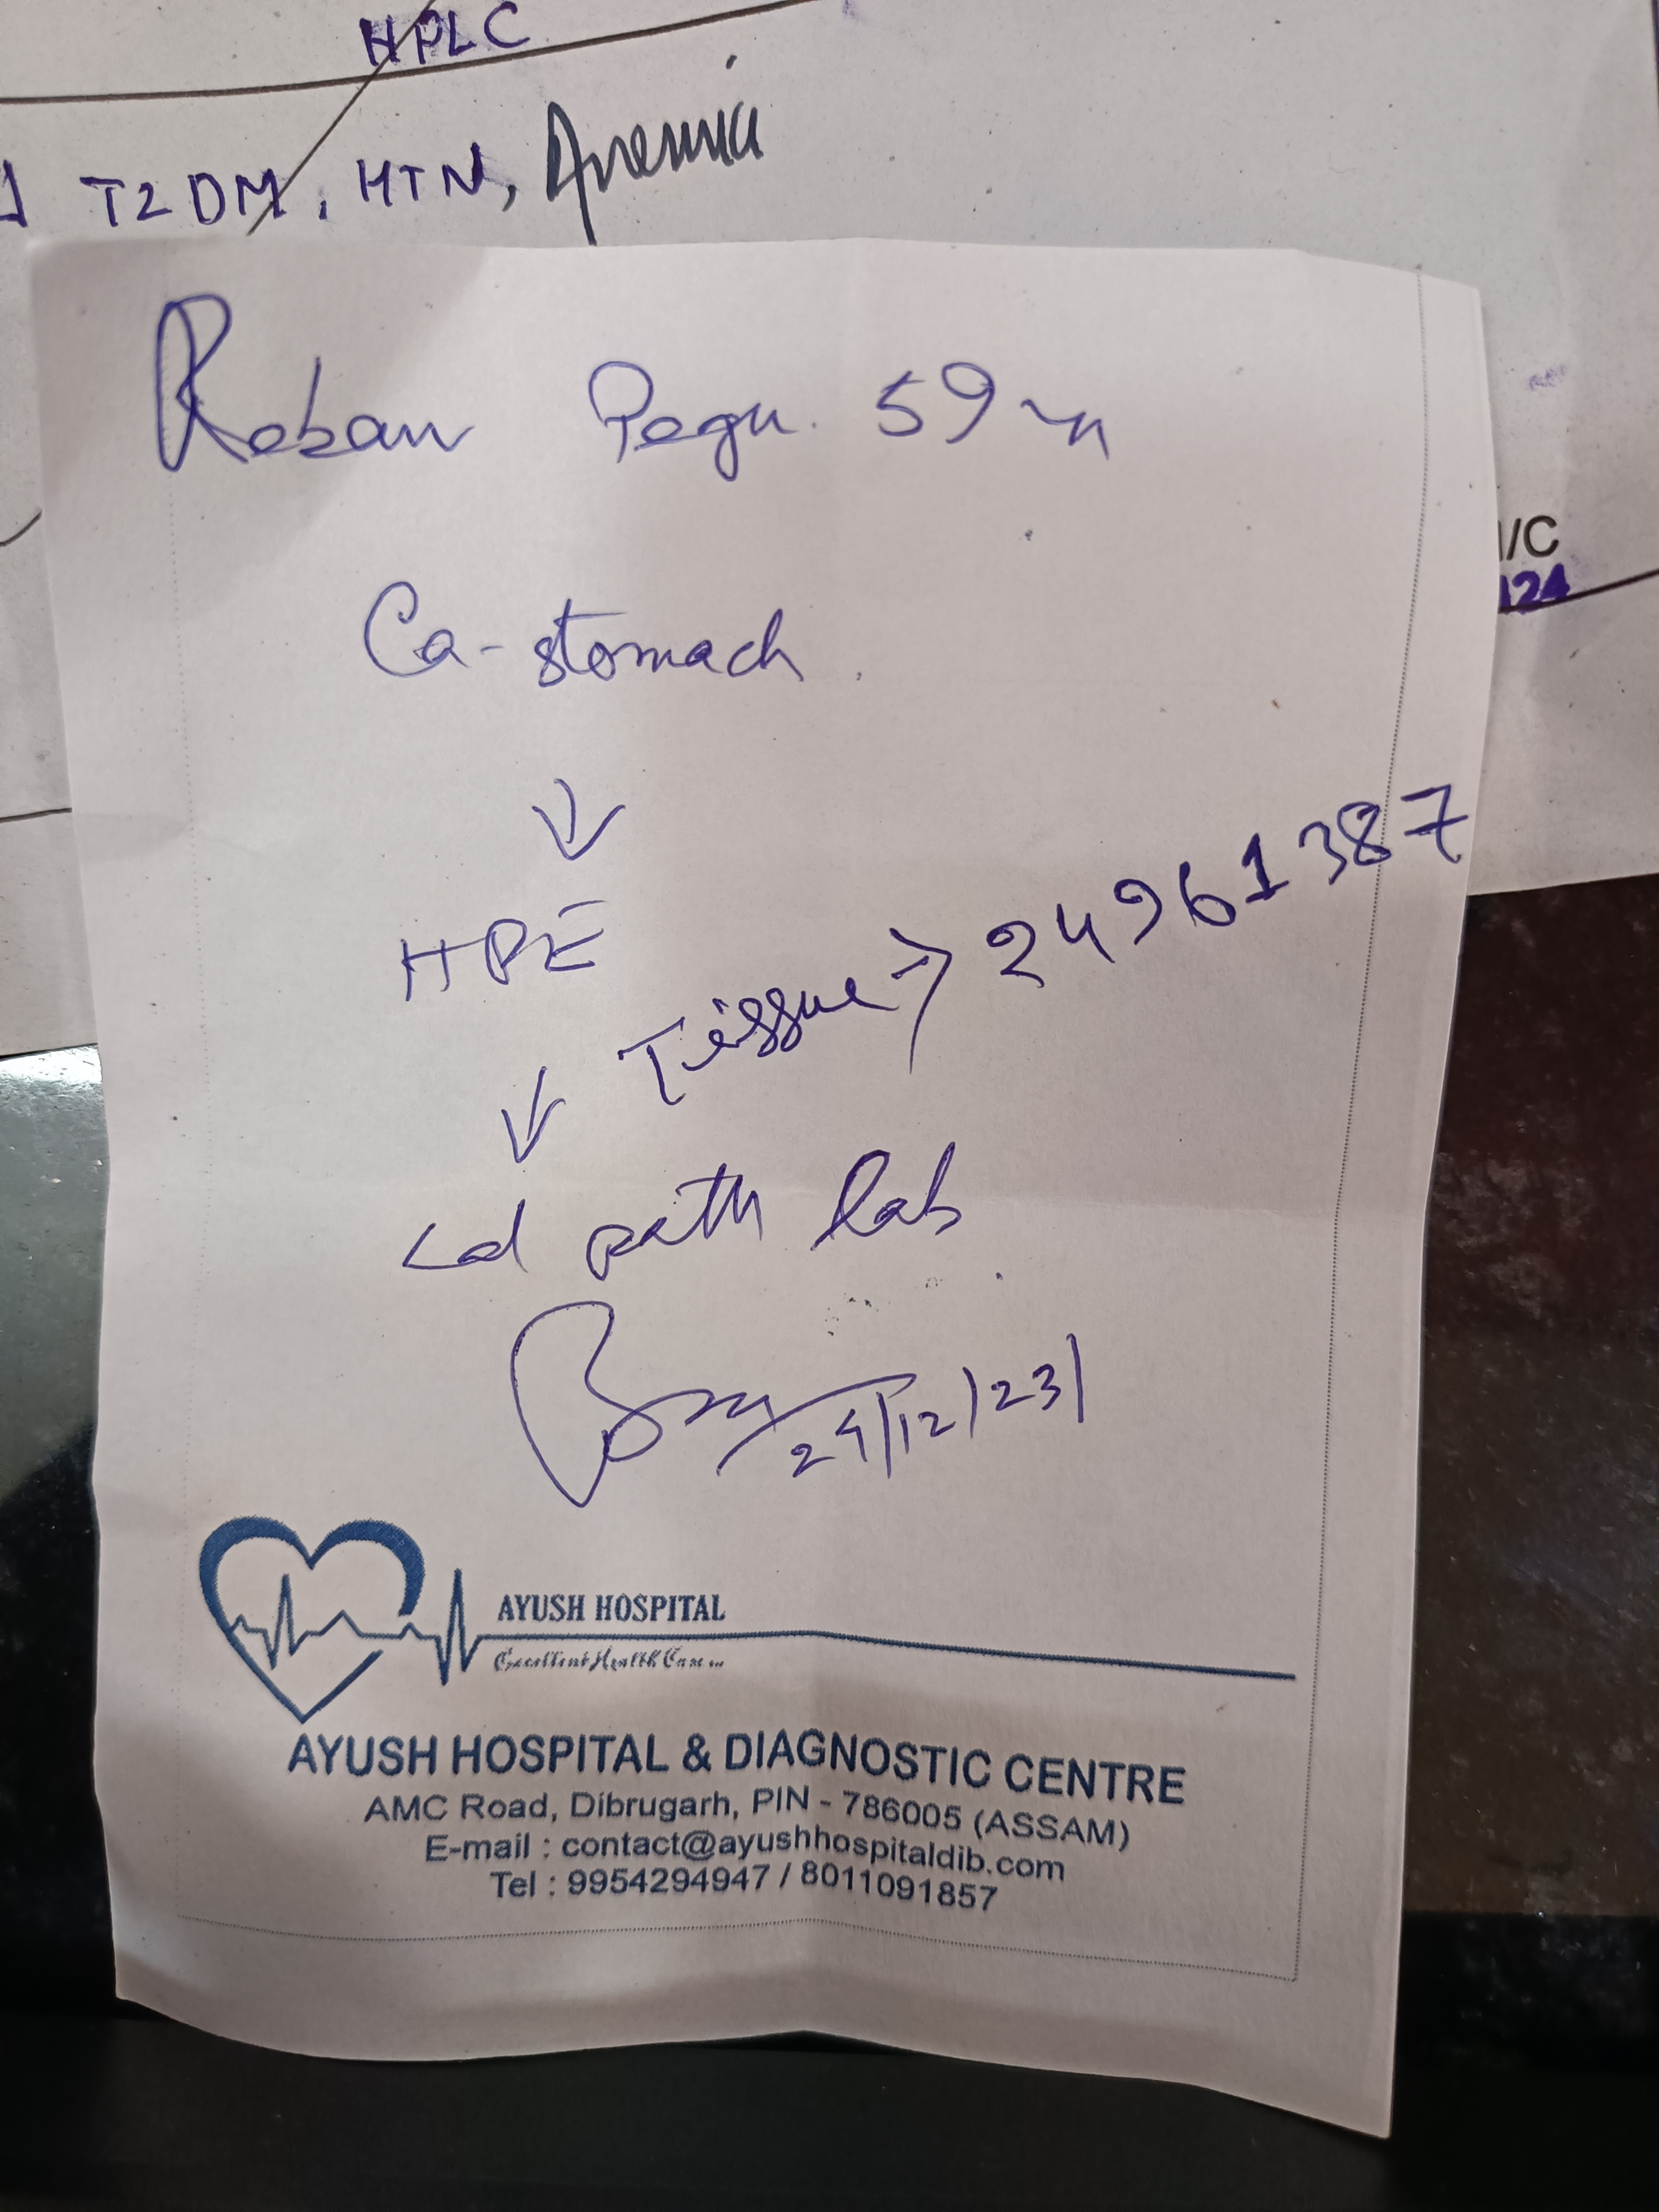 HPLC
T2DM, HTN, Anemia
Roban Pegu. 59
Ca-stomach
HPE
Tissue → 24961387
Lal path lab
24/12/23
/C
124
AYUSH HOSPITAL
Excellent Health Care...
AYUSH HOSPITAL & DIAGNOSTIC CENTRE
AMC Road, Dibrugarh, PIN - 786005 (ASSAM)
E-mail : contact@ayushhospitaldib.com
Tel : 9954294947 / 8011091857